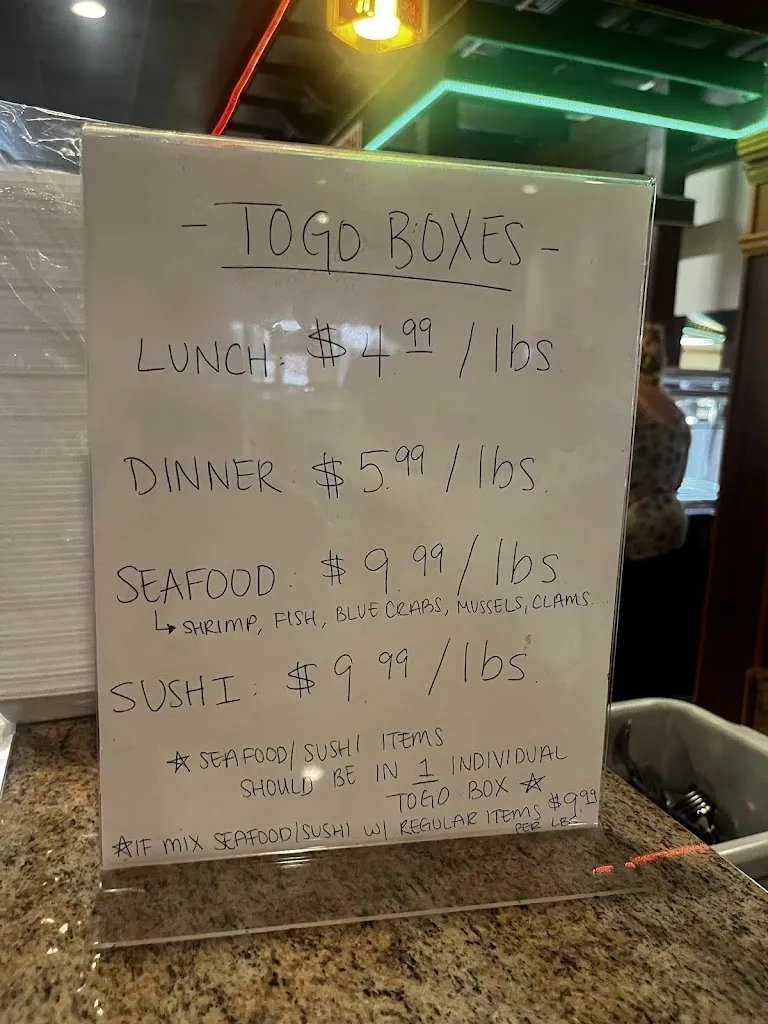 - TOGO BOXES -
LUNCH: $4.99 / lbs
DINNER $5.99 / lbs.
SEAFOOD: $9.99 / lbs
↳ SHRIMP, FISH, BLUE CRABS, MUSSELS, CLAMS.
SUSHI: $9.99 / lbs.
☆ SEAFOOD/SUSHI ITEMS
SHOULD BE IN 1 INDIVIDUAL
TOGO BOX ☆
☆IF MIX SEAFOOD/SUSHI W/ REGULAR ITEMS $9.99
PER LBS